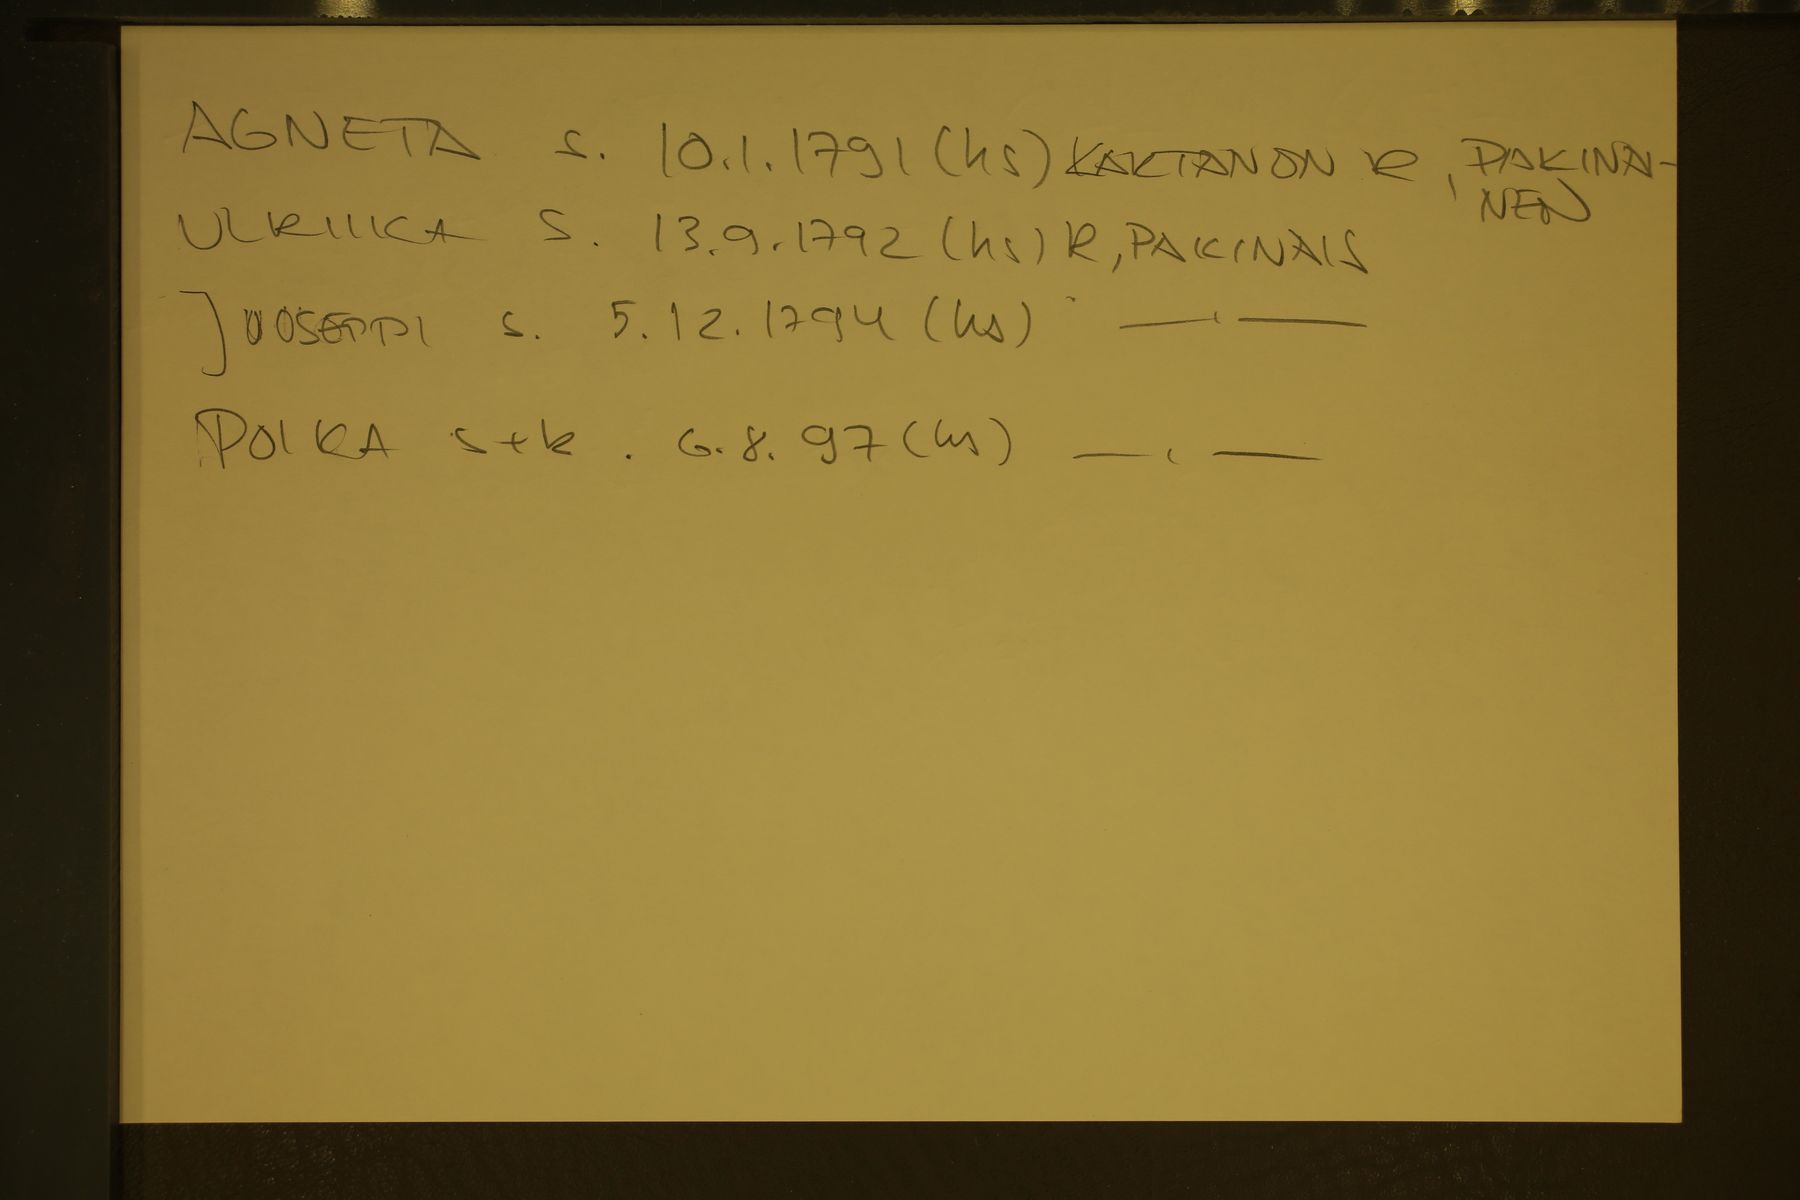 AGNETA s. 10.1.1791 (hs) KAKTANON R, PAKINAI-
NEN
ULRIIKA S. 13.9.1792 (hs) R, PAKINAIS
JUOSEPPI s. 5.12.1794 (hs) —,—
POIKA s+k. 6.8.97 (hs) —,—